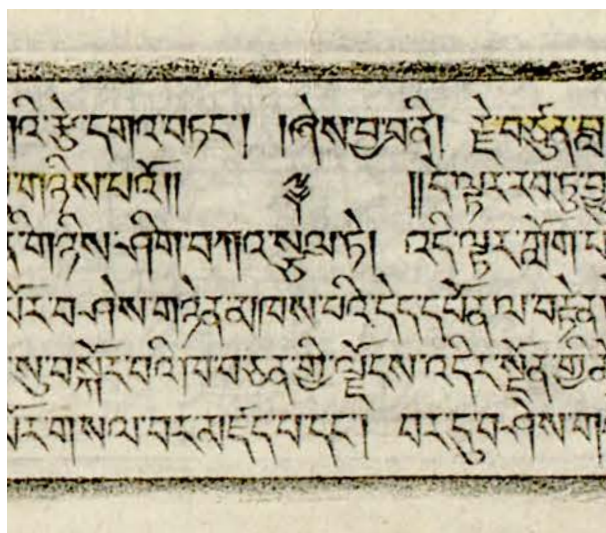 འི་རྩེ་དགའ་བཏང༌། །ཞེས་བྱ་བནི། རྗེ་བཙུན་བླ
གཉིས་པའོ།། །།དེ་ལྟར་རབ་ཏུ་བྱ
གཉིས་ཤིག་བཀའ་སྩལ་ཏེ། འདི་ལྟར་ཀློག་པ
པོར་བཤེས་གཉེན་མཁས་པའི་དེད་དཔོན་ལ་བརྟེན
སུ་བསྐོར་བའི་ཁ་བཅན་གྱི་ལྗོངས་འདིར་སྔོན་གྱི
པོར་གསལ་བར་མཛད་པ་དང༌། བར་དུ་བཤེས་ག